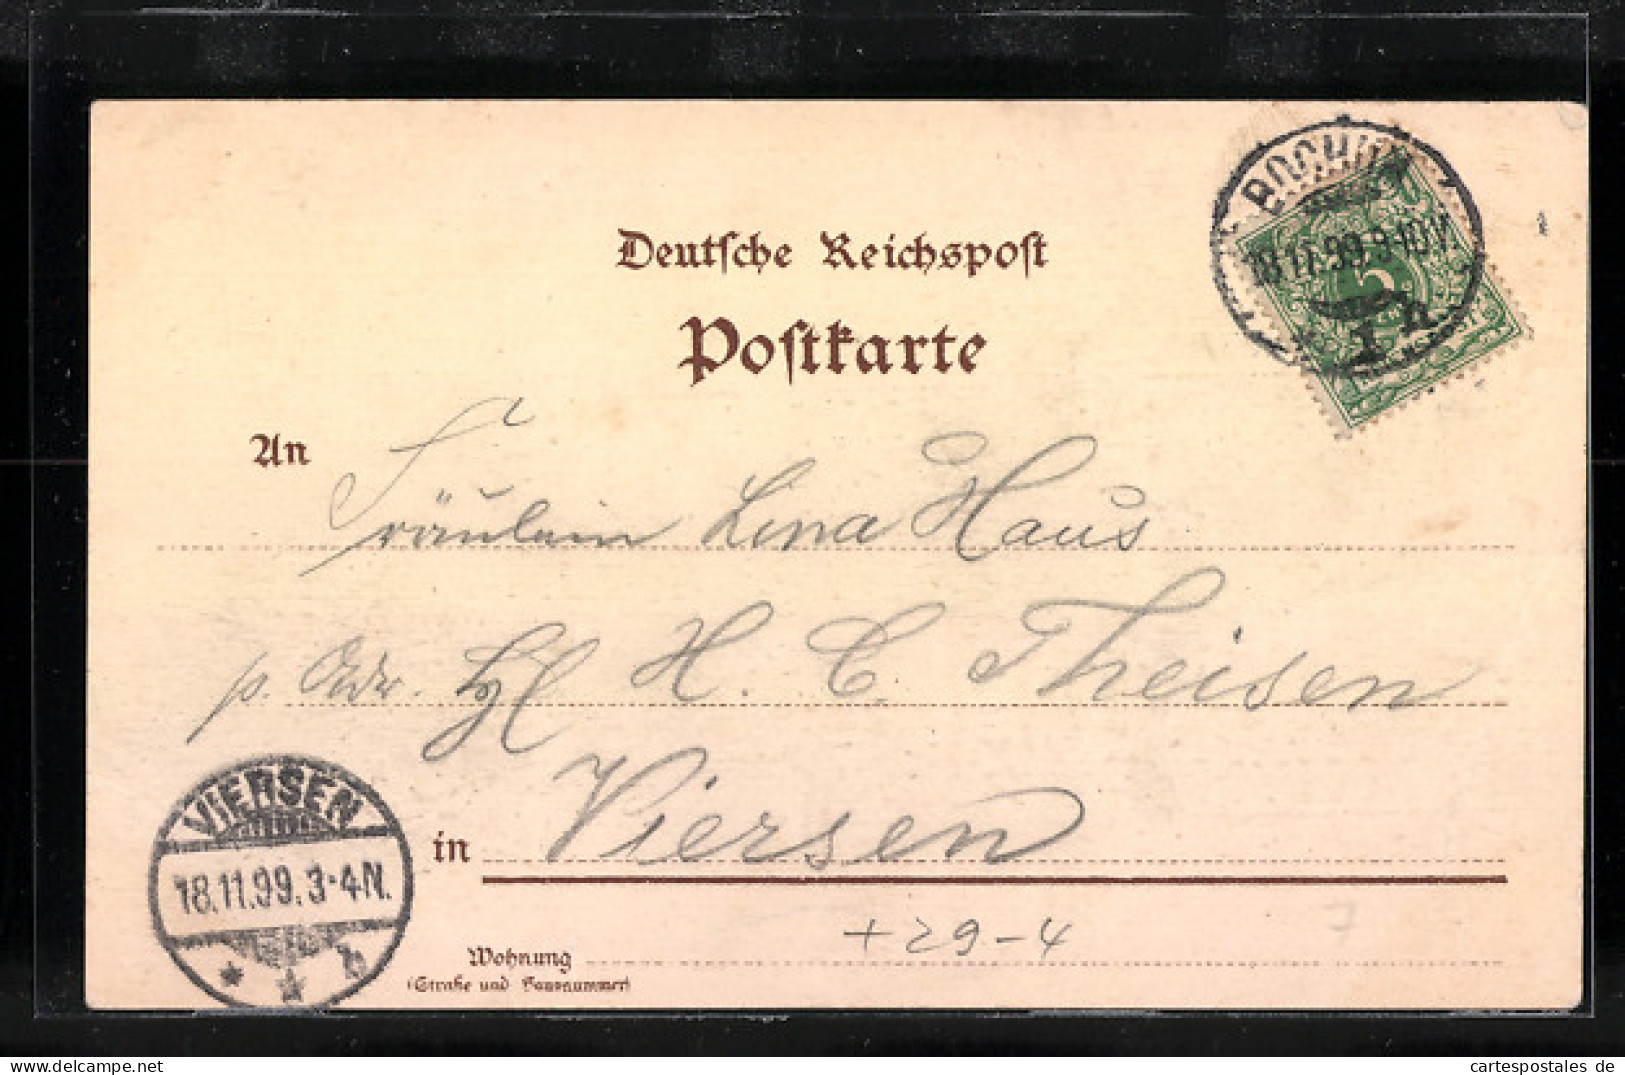 BOCHUM
18.11.99.9-10V.
1 n.
5
Deutsche Reichspost
Postkarte
An
Fräulein Lina Haus
p. Adr. H. C. Theisen
in Viersen
VIERSEN
18.11.99.3-4N.
* * b
+ 29-4
Wohnung
(Straße und Hausnummer)
cartespostales de